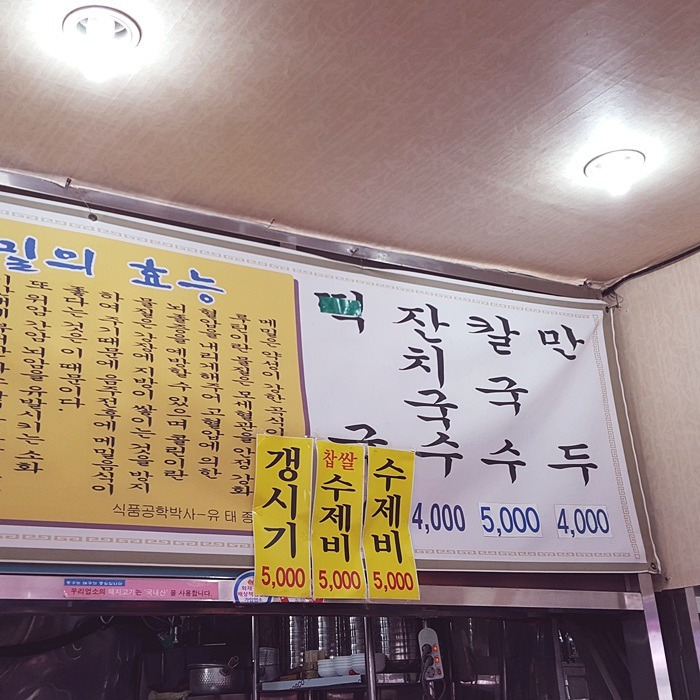 밀의 효능
메밀은 약성이 강한 곡식의
루틴이란 물질은 모세혈관을 안정 강화
혈압을 내리게해주어 고혈압에 의한
뇌출혈을 예방할 수 있으며 콜린이란
물질은 간장에 지방이 쌓이는 것을 방지
하여 주기때문에 음주전후에 메밀음식이
좋다는 것은 이 때문이다.
또 위암 간암 뇌암을 유발시키는 소화
식품공학박사-유 태 종
떡국
잔치국수
4,000
칼국수
5,000
만두
4,000
갱시기
5,000
찹쌀
수제비
5,000
수제비
5,000
우리업소의 돼지고기는 "국내산"을 사용합니다.